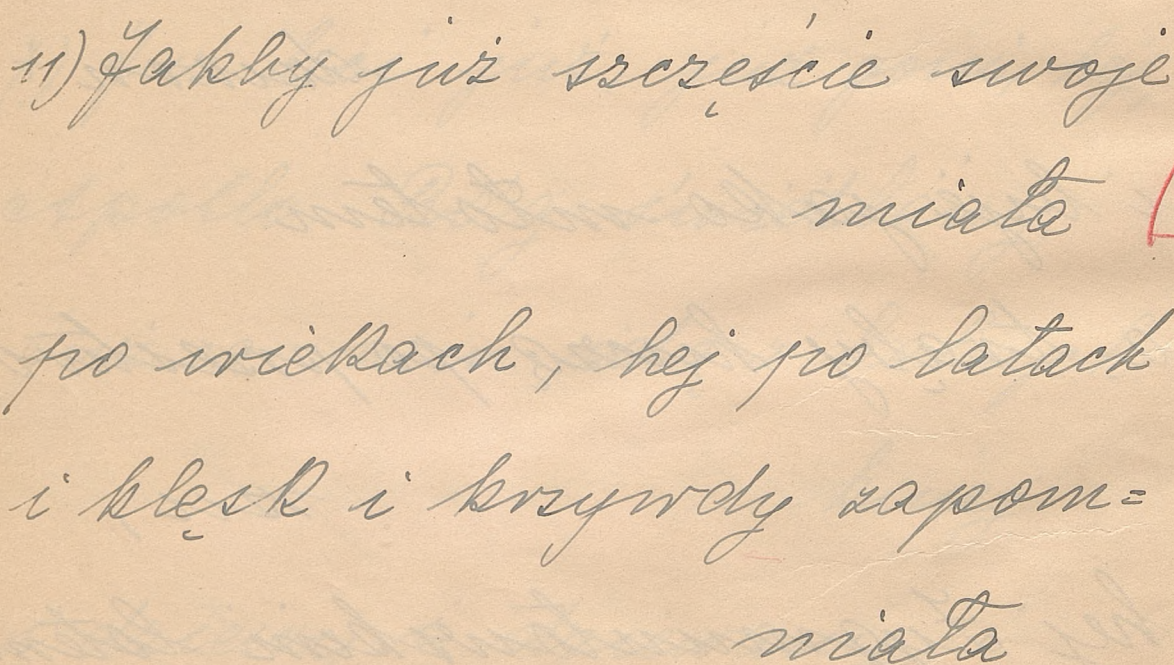 11) Jakby już szczęście swoje
miała
po wiekach, hej po latach
i klęsk i krzywdy zapom=
niała